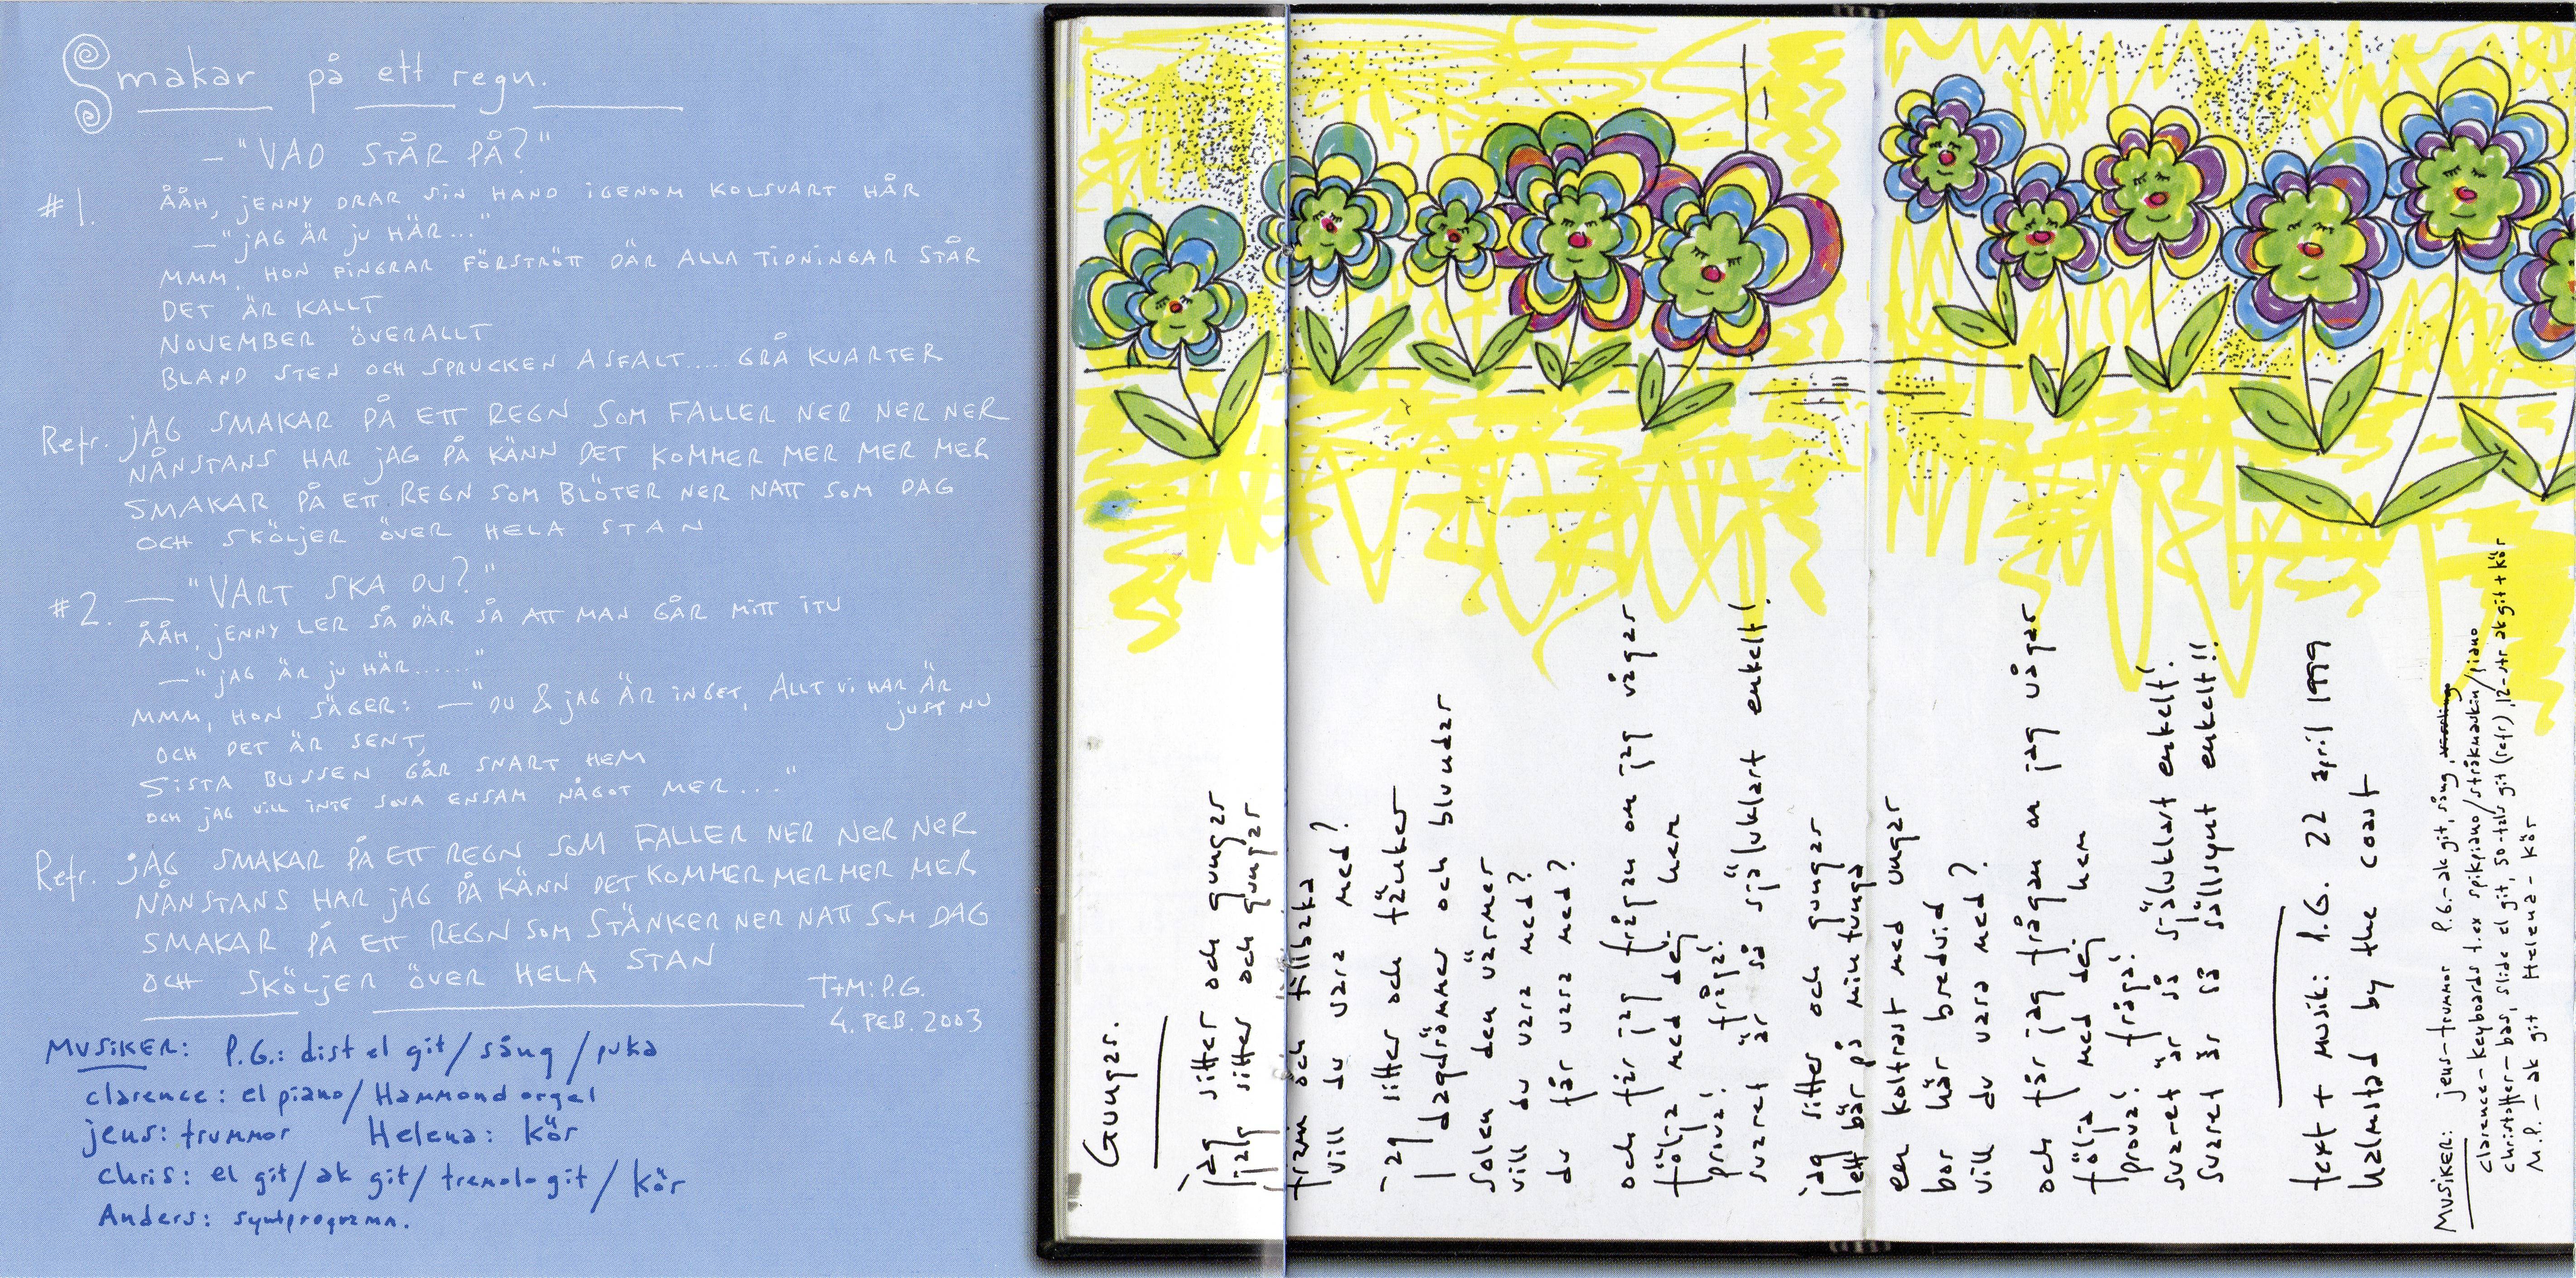 Smakar på ett regn.
— "VAD STÅR PÅ?"
#1. ÅÅH, jENNY DRAR SIN HAND iGENOM KOLSVART HÅR
— "jAG ÄR ju HÄR..."
MMM, HON FINGRAR FÖRSTRÖTT DÄR ALLA TiDNiNGAR STÅR
DET ÄR KALLT
NOVEMBER ÖVERALLT
BLAND STEN OCH SPRUCKEN ASFALT..... GRÅ KVARTER
Refr. jAG SMAKAR PÅ ETT REGN SOM FALLER NER NER NER
NÅNSTANS HAR jAG PÅ KÄNN DET KOMMER MER MER MER
SMAKAR PÅ ETT REGN SOM BLÖTER NER NATT SOM DAG
OCH SKÖLjER ÖVER HELA STAN
#2. — "VART SKA DU?"
ÅÅH, jENNY LER SÅ DÄR SÅ ATT MAN GÅR MITT iTU
— "jAG ÄR ju HÄR......"
MMM, HON SÄGER: — "DU & jAG ÄR iNGET, ALLT Vi HAR ÄR
jUST NU
OCH DET ÄR SENT,
SiSTA BUSSEN GÅR SNART HEM
OCH jAG ViLL iNTE SOVA ENSAM NÅGOT MER..."
Refr. jAG SMAKAR PÅ ETT REGN SOM FALLER NER NER NER
NÅNSTANS HAR jAG PÅ KÄNN DET KOMMER MER MER MER
SMAKAR PÅ ETT REGN SOM STÄNKER NER NATT SOM DAG
OCH SKÖLjER ÖVER HELA STAN
T+M: P.G.
4. FEB. 2003
MUSiKER: P.G.: dist el git/sång/puka
clarence: el piano/Hammond orgel
jens: trummor Helena: kör
chris: el git/ak git/tremolo git/kör
Anders: syntprogramm.
Gungar.
jag sitter och gungar
jag sitter och gungar
fram och tillbaka
vill du vara med?
jag sitter och tänker
dagdrömmer och blundar
solen den värmer
vill du vara med?
du får vara med?
och får jag frågan om jag vågar
följa med dej hem
prova! fråga!
svaret är så självklart enkelt!
jag sitter och gungar
lett bär på min tunga
en koltrast med ungar
bor här bredvid
vill du vara med?
och får jag frågan om jag vågar
följa med dej hem
prova! fråga!
svaret är så självklart enkelt!
svaret är så sällsynt enkelt!!
text + musik: P.G. 22 april 1999
halmstad by the coast
MUSiKER: jens-trummor P.G.-ak git, sång,
clarence-keyboards t.ex spikpiano/stråkmaskin/piano
christoffer-bas, slide el git, 50-tals git (refr), 12-str ak git + kör
M.P. - ak git Helena - kör